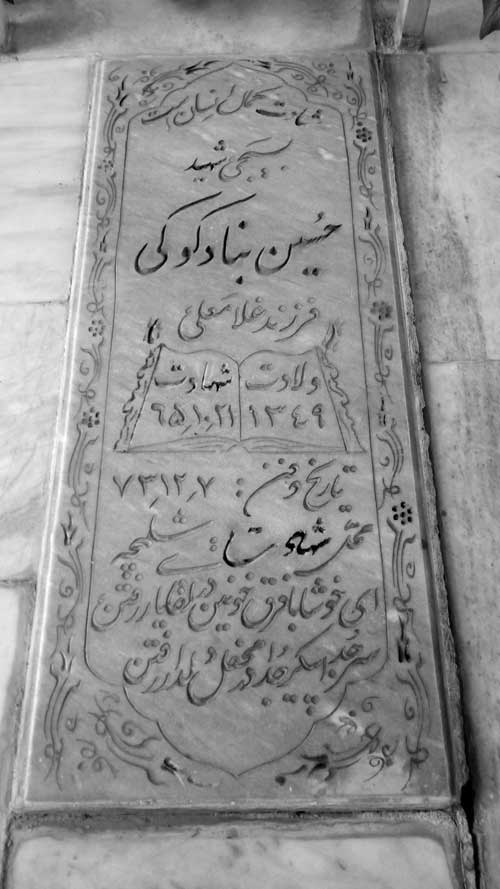 شهادت کمال انسان است
بسیجی شهید
حسین بنادکوکی
فرزند غلامعلی
ولادت شهادت
۱۳۴۹ ۶۵٫۱۰٫۲۱
تاریخ دفن: ۷۳٫۱۲٫۷
محل شهادت: شلمچه
ای خوشا با فرق خونین در لقای یار رفتن
سر جدا پیکر جدا در محفل دلدار رفتن